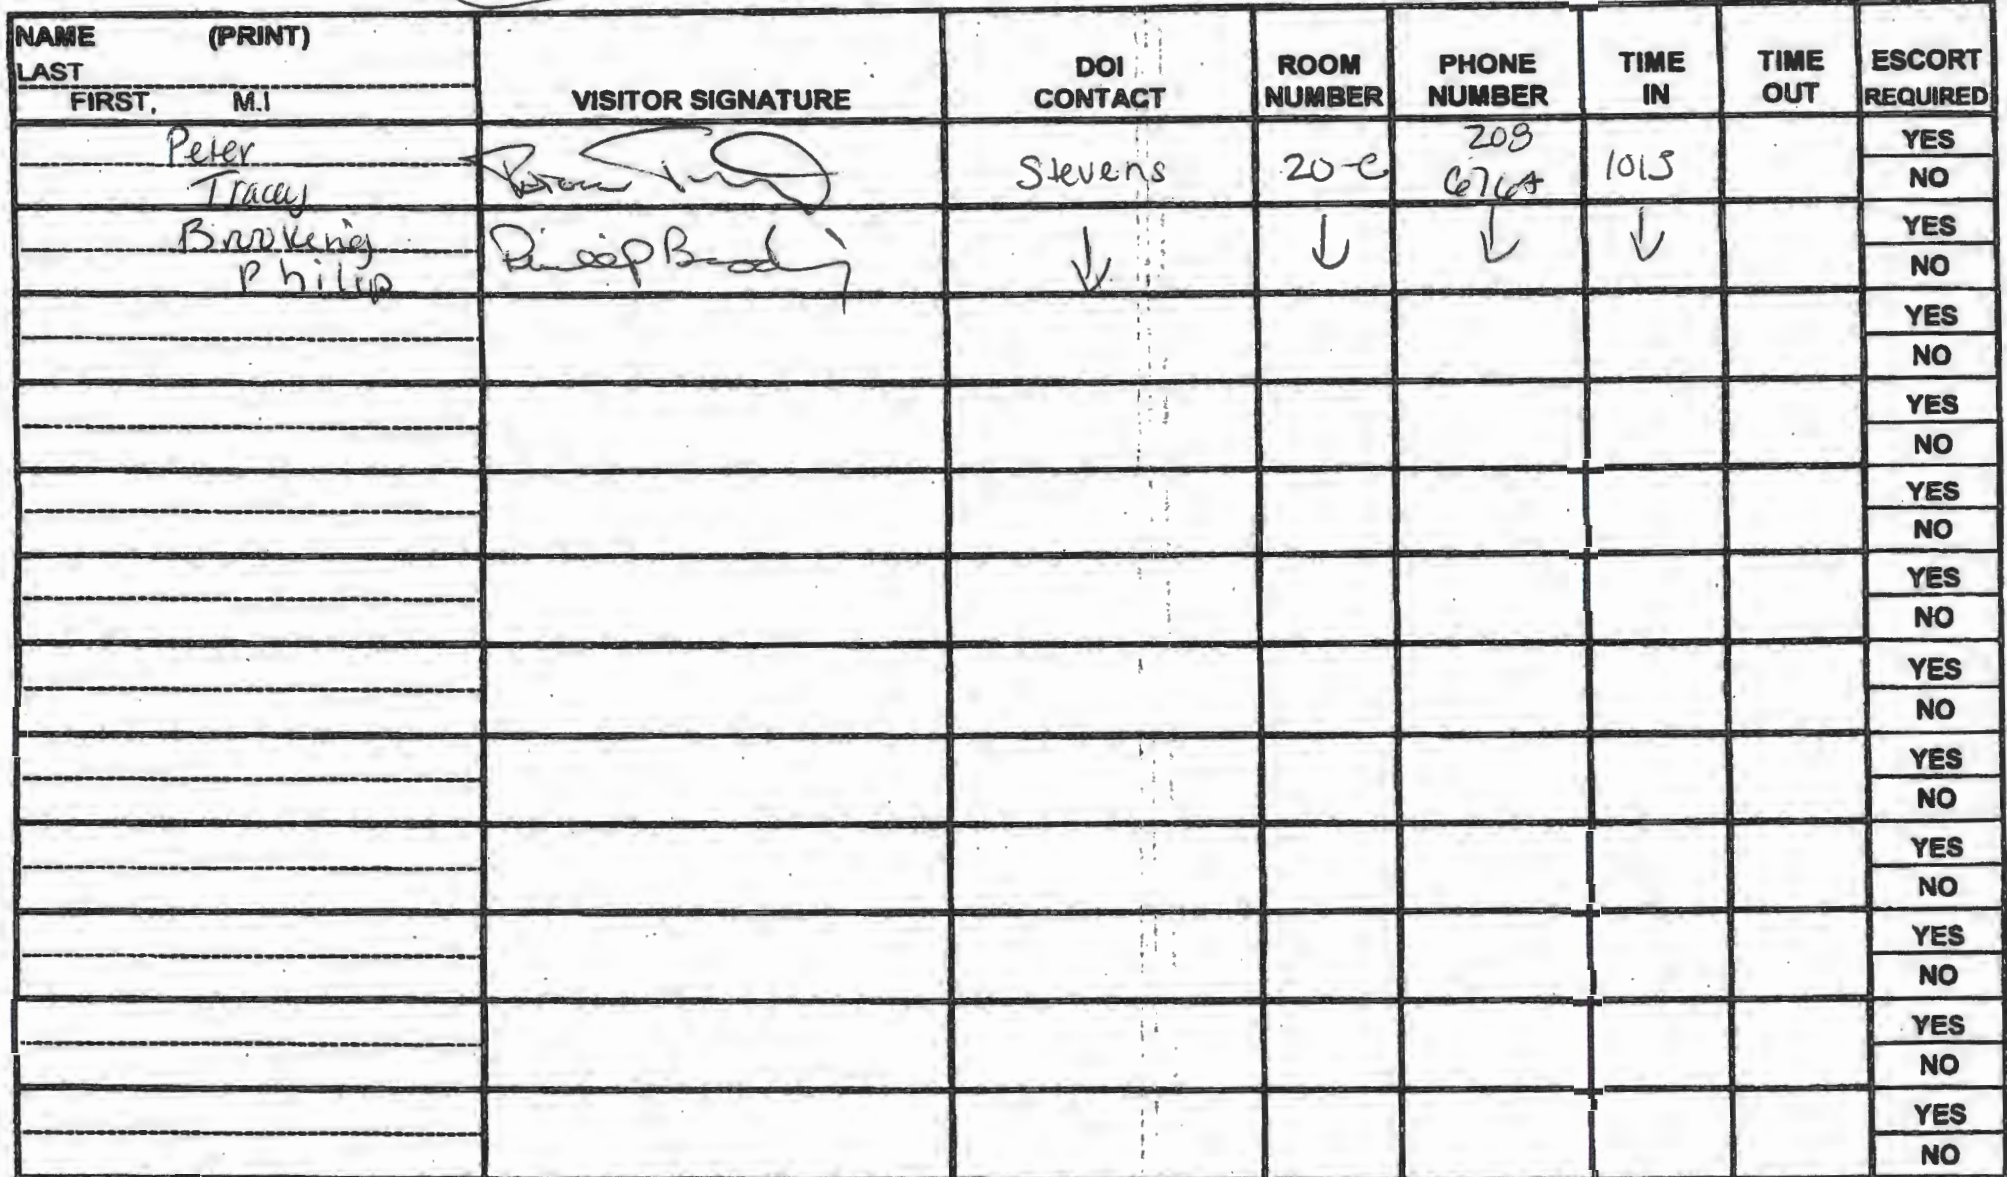 NAME (PRINT)
LAST
FIRST, M.I
VISITOR SIGNATURE
DOI
CONTACT
ROOM
NUMBER
PHONE
NUMBER
TIME
IN
TIME
OUT
ESCORT
REQUIRED
Peter
Tracey
Stevens
20-C
208
1015
YES
NO
Brookeng
Philip
↓ ↓ ↓ ↓
YES
NO
YES
NO
YES
NO
YES
NO
YES
NO
YES
NO
YES
NO
YES
NO
YES
NO
YES
NO
YES
NO